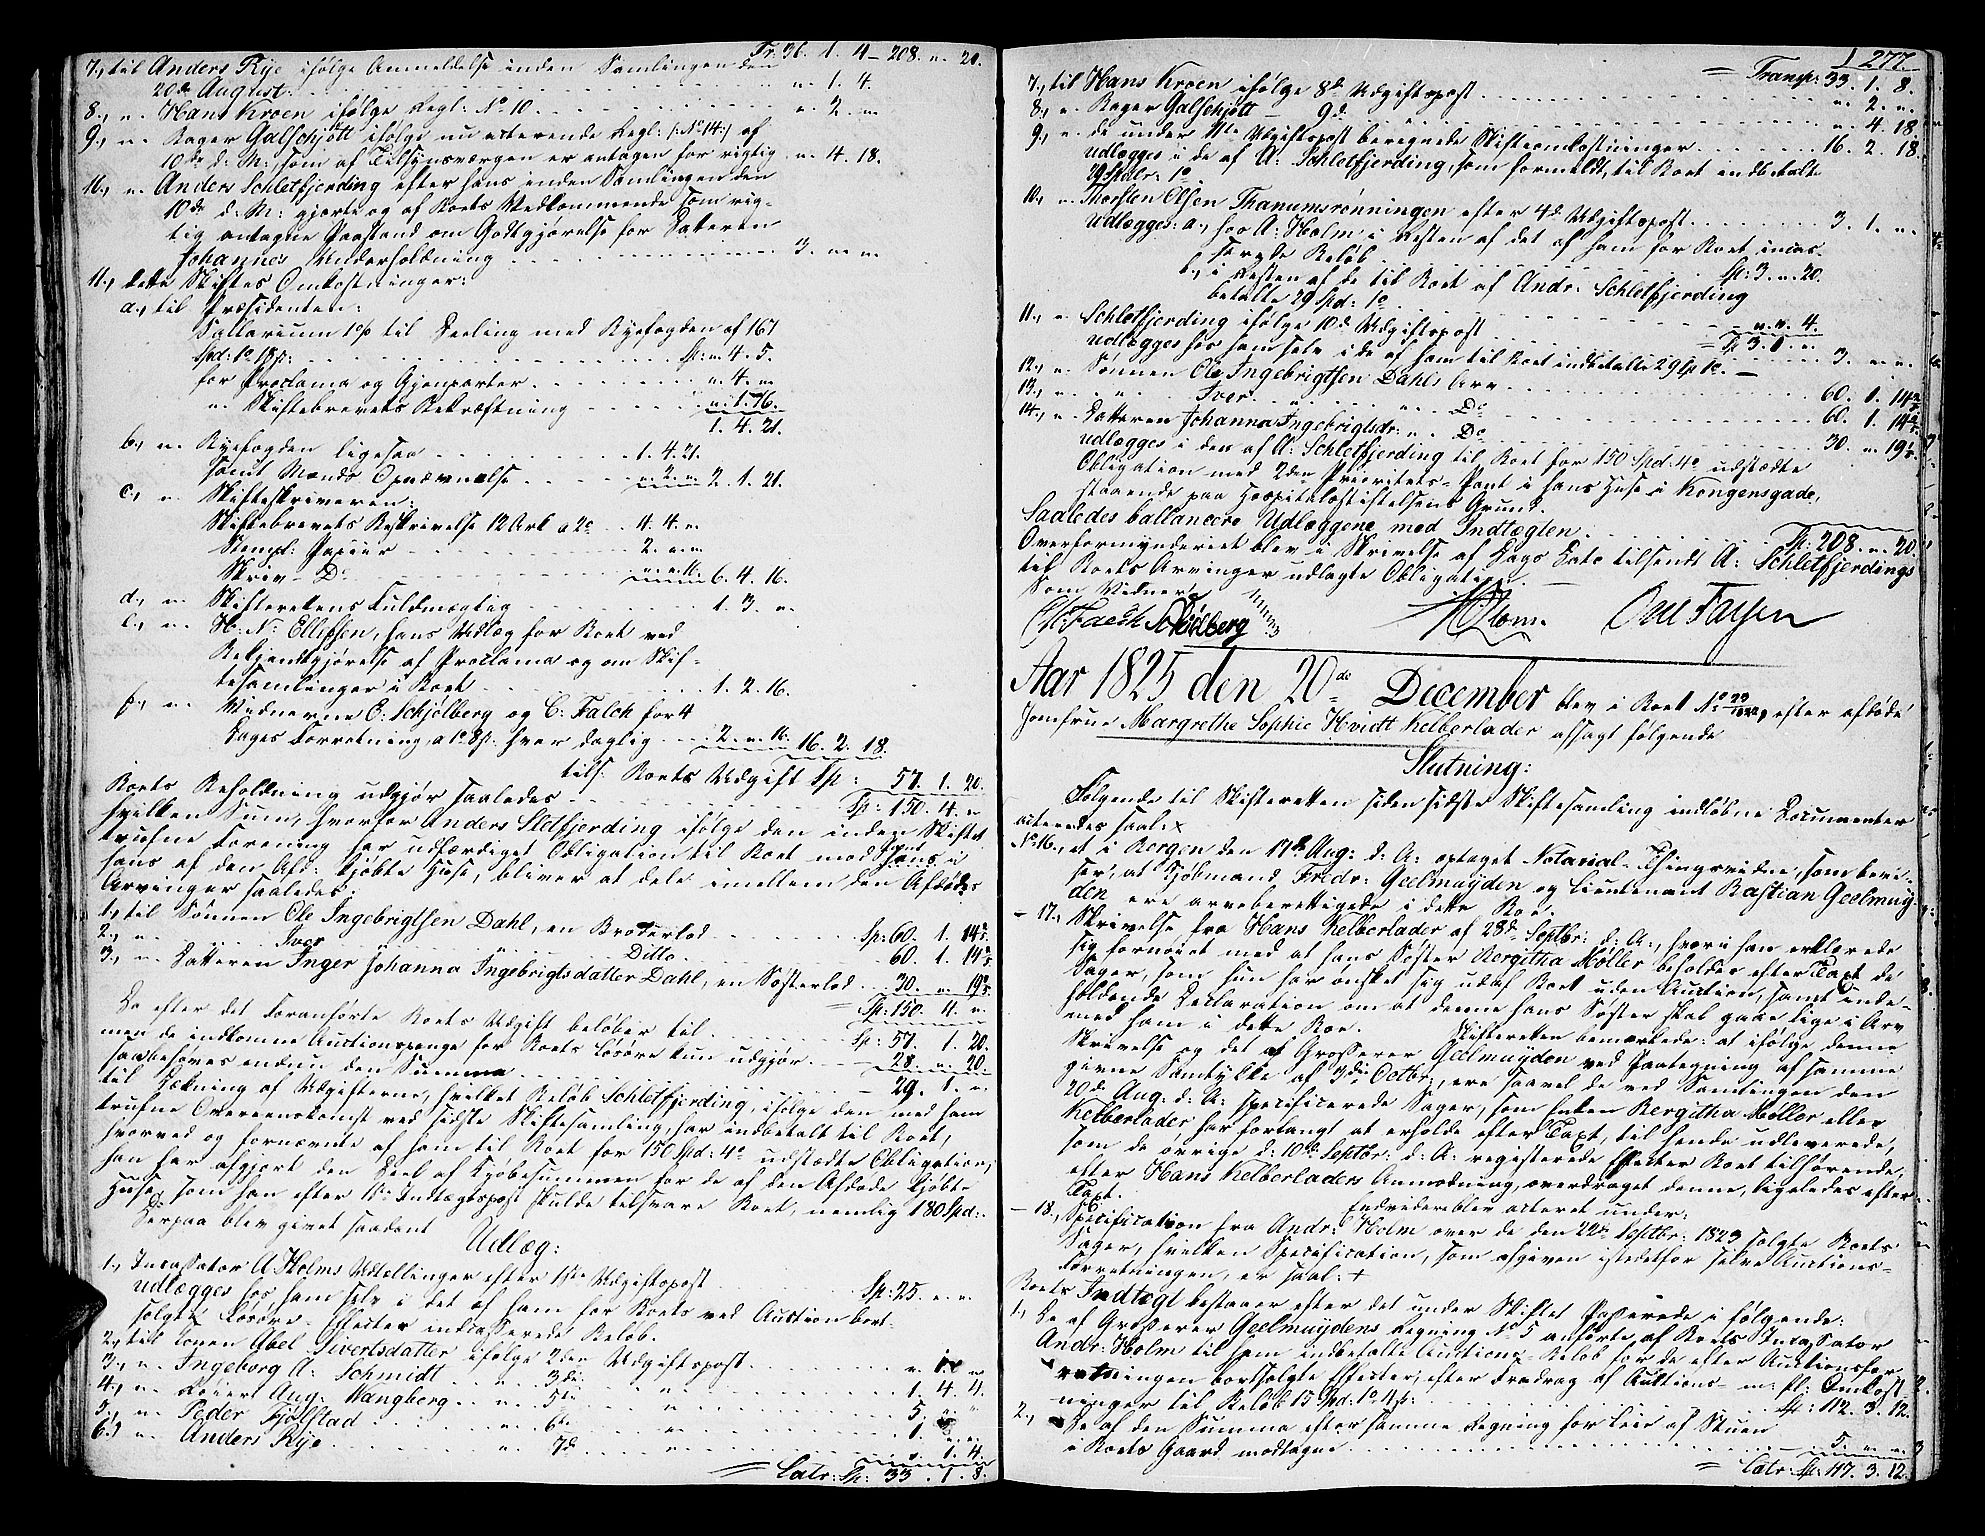 Tr: 36. 1. 4 – 208. „. 20.
7., til Anders Rye ifølge Anmeldelse inden Samlingen den
20de August. . . . „. 1. 4.
8., „. Hans Kroen ifølge Regl: No 10 . . . „. 2. „.
9., „. Kager Galschjött ifølge nu acterende Regl: (:No 14:) af
10de d: M: som af Tilsynsværgen er antagen for rigtig . „. 4. 18.
10., „. Anders Schletfjerding efter hans inden Samlingen den
10de d: M: gjorte og af Boets Vedkommende som rig-
tig antagne Paastand om Godtgjørelse for Datteren
Johannes Underholdning . . . 3. „. „.
11., dette Skiftes Omkostninger:
a., til Præsidenten:
Sallarium 1 p% til Deeling med Byefogden af 167
Spd: 1o 18s: . . . Sp: „. 4. 5.
for Proclama og Gjenparter . . . „. 4. „.
„. Skiftebrevets Bekræftning . . . „. 1. 16.
1. 4. 21.
b., „. Byefogden ligesaa . . . 1. 4. 21.
samt Mands Opnævnelse . . . „. 2. „. 2. 1. 21.
c., „. Skifteskriveren:
Skiftebrevets Beskrivelse 12 Ark a 2o . . 4. 4. „.
Stempl: Papiir . . . 2. „. „.
Skriv – Do . . . „. „. 16. 6. 4. 16.
d., „. Skifterettens Fuldmægtig . . . 1. 3. „.
e., „. H: N: Ellefsen, hans Udlæg for Boet ved
Bekjendtgjørelse af Proclama og om Skif-
tesamlinger i Boet . . . 1. 2. 16.
f., „. Vidnerne O: Schjølberg og C: Falch for 4
Dages Forretning, a 1o 8s: hver daglig . . . 2. „. 16. 16. 2. 18.
tils: Boets Udgift Sp: 57. 1. 20.
Boets Beholdning udgjør saaledes . . . Sp: 150. 4. „.
hvilken Sum, hvorfor Anders Sletfjerding ifølge den inden Skiftet
trufne Forening har udfærdiget Obligation til Boet mod Pant i
hans af den Afd: kjøbte Huse, bliver at dele imellem den Afdødes
Arvinger saaledes:
1., til Sønnen Ole Ingebrigtsen Dahl, en Broderlod . . . Sp: 60. 1. 14 2/5
2., „. . . . Iver . . . Ditto . . . 60. 1. 14 2/5
3., „. Datteren Inger Johanna Ingebrigtsdatter Dahl, en Søsterlod . . 30. „. 19 1/5
= Sp: 150. 4. „.
Da efter det Foranførte Boets Udgift beløber til . . . Sp: 57. 1. 20.
men de indkomne Auctionspenge for Boets Løsøre kun udgjør . . 28. „. 20.
saa behøves endnu den Summa . . . – 29. 1. „.
til Dækning af Udgifterne, hvilket Beløb Schletfjerding, ifølge den med ham
trufne Overeenskomst ved sidste Skiftesamling, har indbetalt til Boet,
hvorved og fornævnte af ham til Boet for 150 Spd: 4o udstædte Obligation,
han har afgjort den Deel af Kjøbesummen for de af den Afdøde kjøbte
Huse, som han efter 1ste Indtægtspost skulde tilsvare Boet, nemlig 180 Spd:.
Derpaa blev givet saadant
Udlæg:
1., Incassator A Holms Udtellinger efter 1ste Udgiftspost . . . Sp: 25. „. „.
udlægges hos ham selv i det af ham for Boets ved Auction bort-
solgte Løsøre-Effecter indcasserede Beløb.
2., til Conen Abel Sivertsdatter ifølge 2den Udgiftspost . . .
3., „. Ingeborg A: Schmidt . . „. 3die . . . 1. 4. 4.
4., „. Aug: Wangberg . . „. 5te . . . 5. „. „.
5., „. Peder Fjølstad . . . „. 6te . . . 1. „. „.
6., „. Anders Rye . . . „. 7de . . . „. 1. 4.
= Latr: Sp: 33. 1. 8.
277.
= Transp: 33. 1. 8.
7., til Hans Kroen ifølge 8de Udgiftspost . . . „. 2. „.
8., „. Kager Galschjött – 9de . . . „. 4. 18.
9., „. de under 11te Udgiftspost beregnede Skifteomkostninger . . . 16. 2. 18.
udlægges i de af A: Schletfjerding, som formeldt, til Boet indbetalte
29 Spdlr: 1o
10., „. Thorsten Olsen Thanumsrønningen efter 4de Udgiftspost . . . 3. 1. „.
udlægges: a., hos A: Holm i Resten af det af ham for Boet incas-
serede Beløb . . . Sp: 3. „. 20.
b., i Resten af de til Boet af Andr: Schletfjerding
betalte 29 Spd: 1o . . . „. „. 4.
= Sp 3. 1. „.
11., „. Schletfjerding ifølge 10de Udgiftspost . . .
udlægges hos ham selv i de af ham til Boet indbetalte 29 Sp 1o. – 3. „. „.
12., „. Sønnen Ole Ingebrigtsen Dahls Arv . . . 60. 1. 14 2/5
13., „. „. Iver . . . „. Do . . . 60. 1. 14 2/5
14., „. Datteren Johanna Ingebrigtsdr: „. Do . . . 30. „. 19 1/5
udlægges i den af A: Schletfjerding til Boet for 150 Spd: 4o udstædte
Obligation med 2den Prioritets-Pant i hans Huse i Kongensgade,
staaende paa Hospitalsstiftelsens Grund.
Saaledes ballancere Udlæggene med Indtægten . . . Sp: 208. „. 20.
Overformynderiet blev i Skrivelse af Dags Dato tilsendt A: Schletfjerdings
til Boets Arvinger udlagte Obligation. –
Som Vidner:
C. Falch Schjølberg AHolm. Ole Farsen
Aar 1825 den 20de December blev i Boet No 29/1823, efter afdøde
Jomfrue Margrethe Sophie Hvidt Kelberlader afsagt følgende
Slutning:
Følgende til Skifteretten siden sidste Skiftesamling indløbne Documenter
acteredes saal: x
No 16., et i Bergen den 17de Aug: d: A: optaget Notarial-Thingsvidne, som bevi-
ser, at Kjøbmand Fredr: Geelmuyden og Lieutenant Bastian Geelmuy-
den ere arveberettigede i dette Boe.
– 17., Skrivelse fra Hans Kelberlader af 28de Septbr: d: A:, hvori han erklærede
sig fornøiet med at hans Søster Bergitha Møller beholder efter Taxt de
Sager, som hun har ønsket sig udaf Boet uden Auction, samt inde-
holdende Declaration om at denne hans Søster skal gaae lige i Arv
med ham i dette Boe. Skifteretten bemærkede: at ifølge denne
Skrivelse og det af Grosserer Geelmuyden ved Paategning af samme
givne Samtykke af 3die Octbr:, ere saavel de ved Samlingen den
20de Aug: d: A: specificerede Sager, som Enken Bergitha Møller eller
Kelberlader har forlangt at erholde efter Taxt, til hende udleverede,
som de øvrige d: 10de Septbr: d: A: registerede Effecter Boet tilhørende,
efter Hans Kelberladers Anmodning, overdraget denne, ligeledes efter
Taxt. Endvidere blev acteret under:
– 18., Specification fra Andr: Holm over de den 22de Septbr: 1823 solgte Boets
Sager, hvilken Specification, som afgiven istedetfor selve Auctions-
forretningen, er saal: +
Boets Indtægt bestaaer efter det under Skiftet Passerede i følgende:
1., De af Grosserer Geelmuydens Regning No 5 anførte, af Boets Incassator
Andr: Holm til ham indbetalte Auctions-Beløb for de efter Auctionsfor-
retningen bortsolgte Effecter, efter Fradrag af Auctions- m: fl: Omkost-
ninger til Beløb 15 Spd: 1o 4s: . . . Sp: 112. 3. 12.
2., De af den Summa efter samme Regning for Leie af Stuen
i Boets Gaard modtagne . . . 5. „. „.
= Latr: Sp: 117. 3. 12.